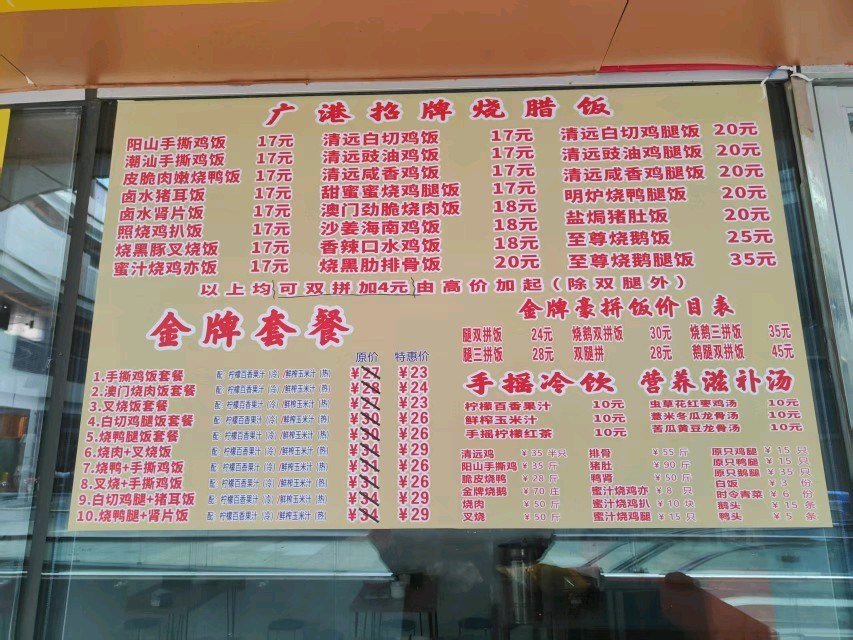 广港招牌烧腊饭
阳山手撕鸡饭 17元
潮汕手撕鸡饭 17元
皮脆肉嫩烧鸭饭 17元
卤水猪耳饭 17元
卤水肾片饭 17元
照烧鸡扒饭 17元
烧黑豚叉烧饭 17元
蜜汁烧鸡亦饭 17元
清远白切鸡饭 17元
清远豉油鸡饭 17元
清远咸香鸡饭 17元
甜蜜蜜烧鸡腿饭 17元
澳门劲脆烧肉饭 18元
沙姜海南鸡饭 18元
香辣口水鸡饭 18元
烧黑肋排骨饭 20元
清远白切鸡腿饭 20元
清远豉油鸡腿饭 20元
清远咸香鸡腿饭 20元
明炉烧鸭腿饭 20元
盐焗猪肚饭 20元
至尊烧鹅饭 25元
至尊烧鹅腿饭 35元
以上均可双拼加4元由高价加起(除双腿外)
金牌套餐
原价 特惠价
1.手撕鸡饭套餐 配 柠檬百香果汁(冷)/鲜榨玉米汁(热) ¥27 ¥23
2.澳门烧肉饭套餐 配 柠檬百香果汁(冷)/鲜榨玉米汁(热) ¥24
3.叉烧饭套餐 配 柠檬百香果汁(冷)/鲜榨玉米汁(热) ¥27 ¥23
4.白切鸡腿饭套餐 配 柠檬百香果汁(冷)/鲜榨玉米汁(热) ¥30 ¥26
5.烧鸭腿饭套餐 配 柠檬百香果汁(冷)/鲜榨玉米汁(热) ¥30 ¥26
6.烧肉+叉烧饭 配 柠檬百香果汁(冷)/鲜榨玉米汁(热) ¥34 ¥29
7.烧鸭+手撕鸡饭 配 柠檬百香果汁(冷)/鲜榨玉米汁(热) ¥31 ¥26
8.叉烧+手撕鸡饭 配 柠檬百香果汁(冷)/鲜榨玉米汁(热) ¥31 ¥26
9.白切鸡腿+猪耳饭 配 柠檬百香果汁(冷)/鲜榨玉米汁(热) ¥34 ¥29
10.烧鸭腿+肾片饭 配 柠檬百香果汁(冷)/鲜榨玉米汁(热) ¥34 ¥29
金牌豪拼饭价目表
腿双拼饭 24元 烧鹅双拼饭 30元 烧鹅三拼饭 35元
腿三拼饭 28元 双腿拼 28元 鹅腿双拼饭 45元
手摇冷饮
柠檬百香果汁 10元
鲜榨玉米汁 10元
手摇柠檬红茶 10元
营养滋补汤
虫草花红枣鸡汤 10元
薏米冬瓜龙骨汤 10元
苦瓜黄豆龙骨汤 10元
清远鸡 ¥35半只
阳山手撕鸡 ¥35斤
脆皮烧鸭 ¥28斤
金牌烧鹅 ¥70庄
烧肉 ¥50斤
叉烧 ¥50斤
排骨 ¥55斤
猪肚 ¥90斤
鸭肾 ¥50斤
蜜汁烧鸡亦 ¥8只
蜜汁烧鸡扒 ¥10块
蜜汁烧鸡腿 ¥15只
原只鸡腿 ¥15只
原只鸭腿 ¥15只
原只鹅腿 ¥35只
白饭 ¥3份
时令青菜 ¥6份
鹅头 ¥15条
鸭头 ¥5条